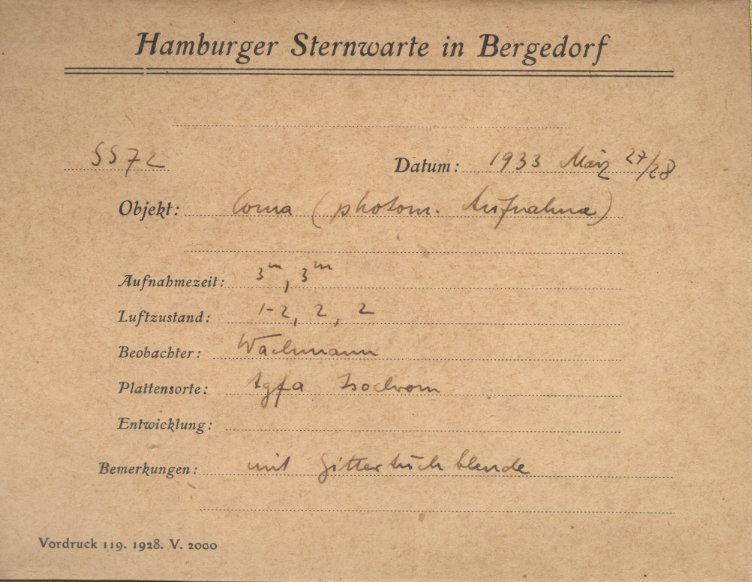 Hamburger Sternwarte in Bergedorf
SS72 Datum: 1933 März 27/28
Objekt: Coma (photom. Aufnahme)
Aufnahmezeit: 3ᵐ, 3ᵐ
Luftzustand: 1-2, 2, 2
Beobachter: Wachmann
Plattensorte: Agfa Isochrom
Entwicklung:
Bemerkungen: mit Gittertuchblende
Vordruck 119. 1928. V. 2000